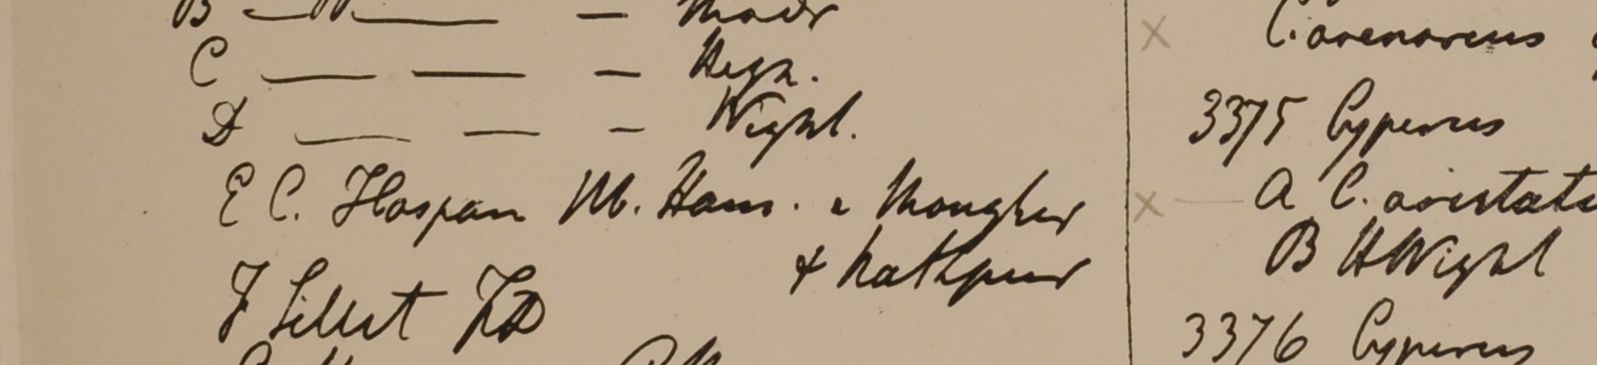 B — — — Madr
C — — — Heyn.
D — — — Wight.
E C. Haspan M. Ham. e Mongher
& Nathpur
F Sillet FD
C. arenarius
3375 Cyperus
A C. aristat
B H Wight
3376 Cyperus